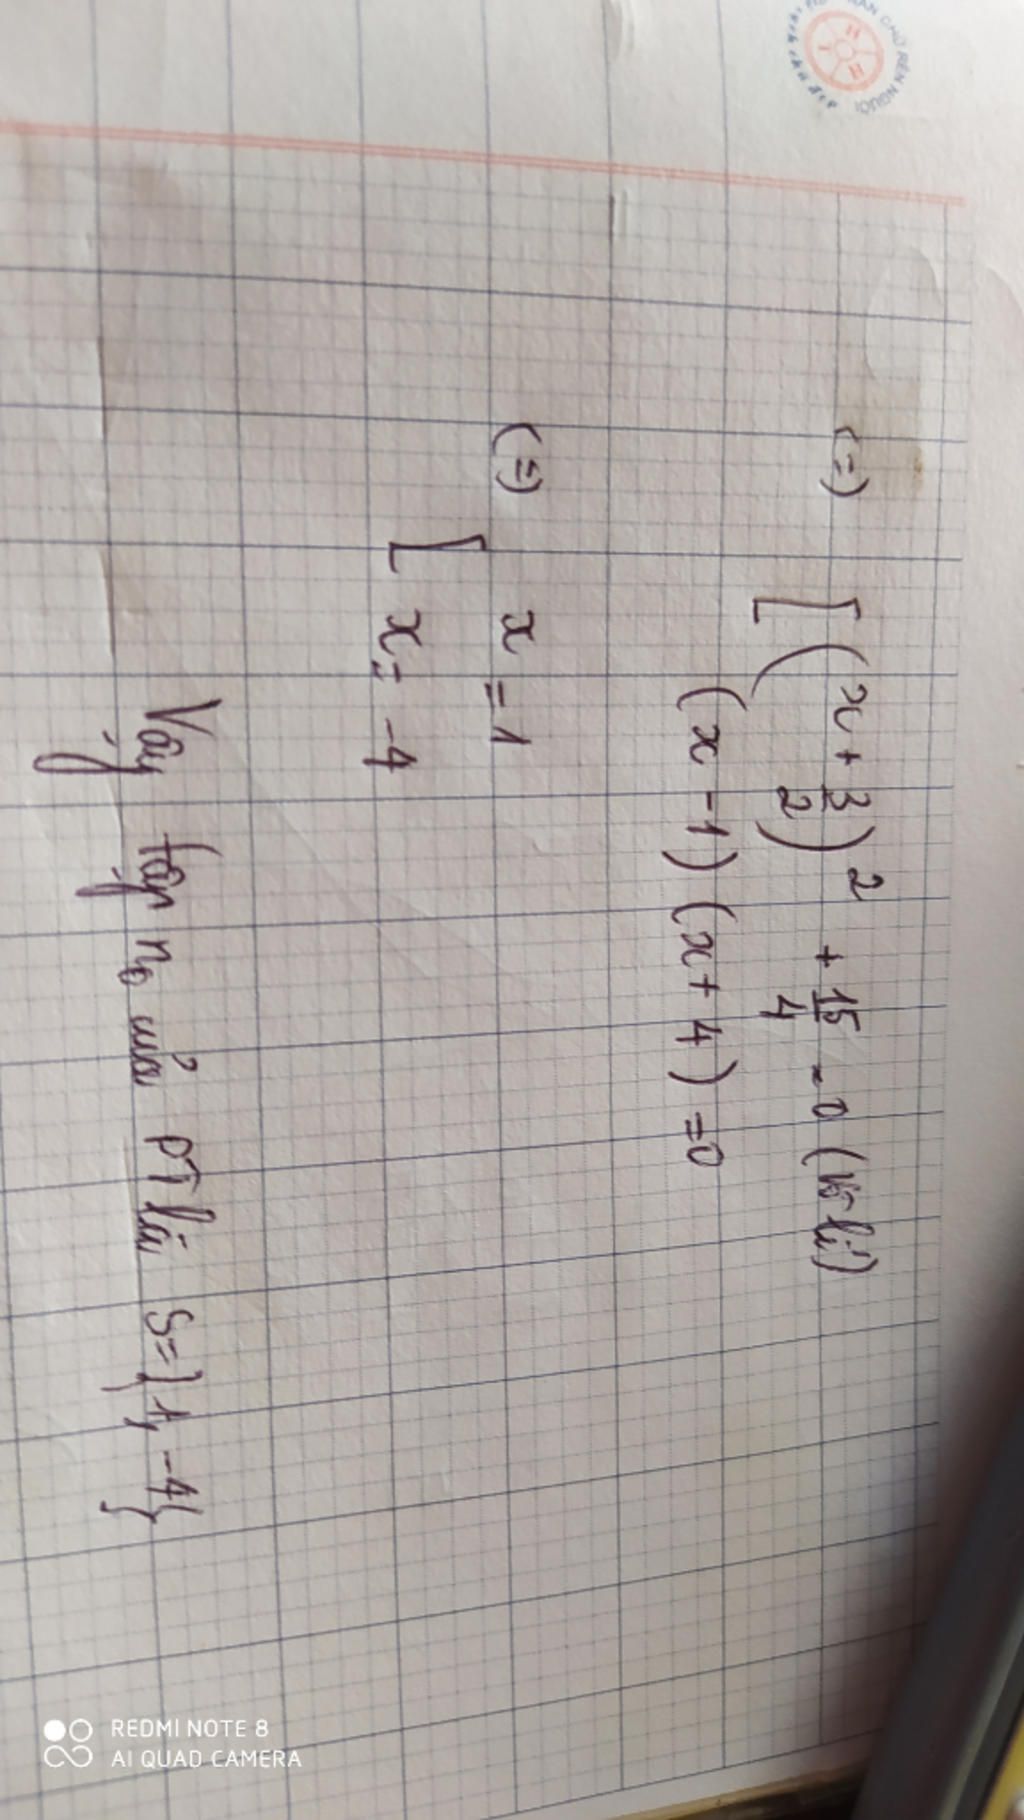 (=) [ (x + 3/2)² + 15/4 = 0 (vô lí)
(x - 1) (x + 4) = 0
(=) [ x = 1
x = -4
Vậy tập no của PT là S = {1, -4}
REDMI NOTE 8
AI QUAD CAMERA